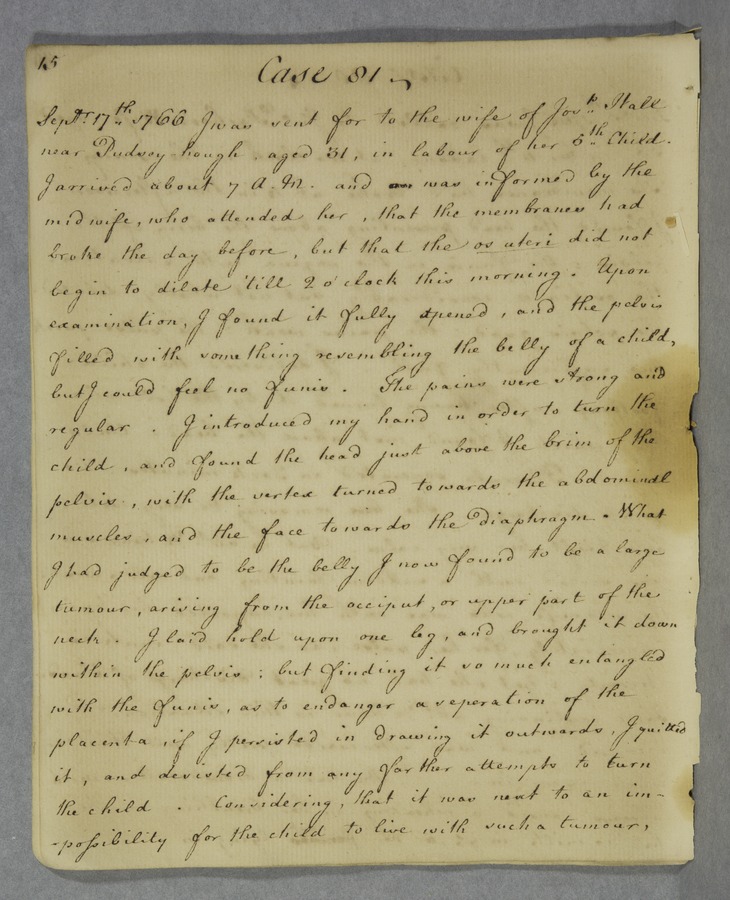 15
Case 81
Septr. 17th. 1766 I was sent for to the wife of Josh. Hall
near Dudsey-hough, aged 31, in labour of her 5th. Child.
I arrived about 7 A.M. and was informed by the
midwife, who attended her, that the membranes had
broke the day before, but that the os uteri did not
begin to dilate 'till 2 o'clock this morning. Upon
examination, I found it fully opened, and the pelvis
filled with something resembling the belly of a child,
but I could feel no funis. The pains were strong and
regular. I introduced my hand in order to turn the
child, and found the head just above the brim of the
pelvis, with the vertex turned towards the abdominal
muscles, and the face towards the Diaphragm. What
I had judged to be the belly I now found to be a large
tumour, arising from the occiput, or upper part of the
neck. I laid hold upon one leg, and brought it down
within the pelvis; but finding it so much entangled
with the funis, as to endanger a seperation of the
placenta, if I persisted in drawing it outwards, I quitted
it, and desisted from any farther attempts to turn
the child. Considering, that it was next to an im-
-possibility for the child to live with such a tumour,